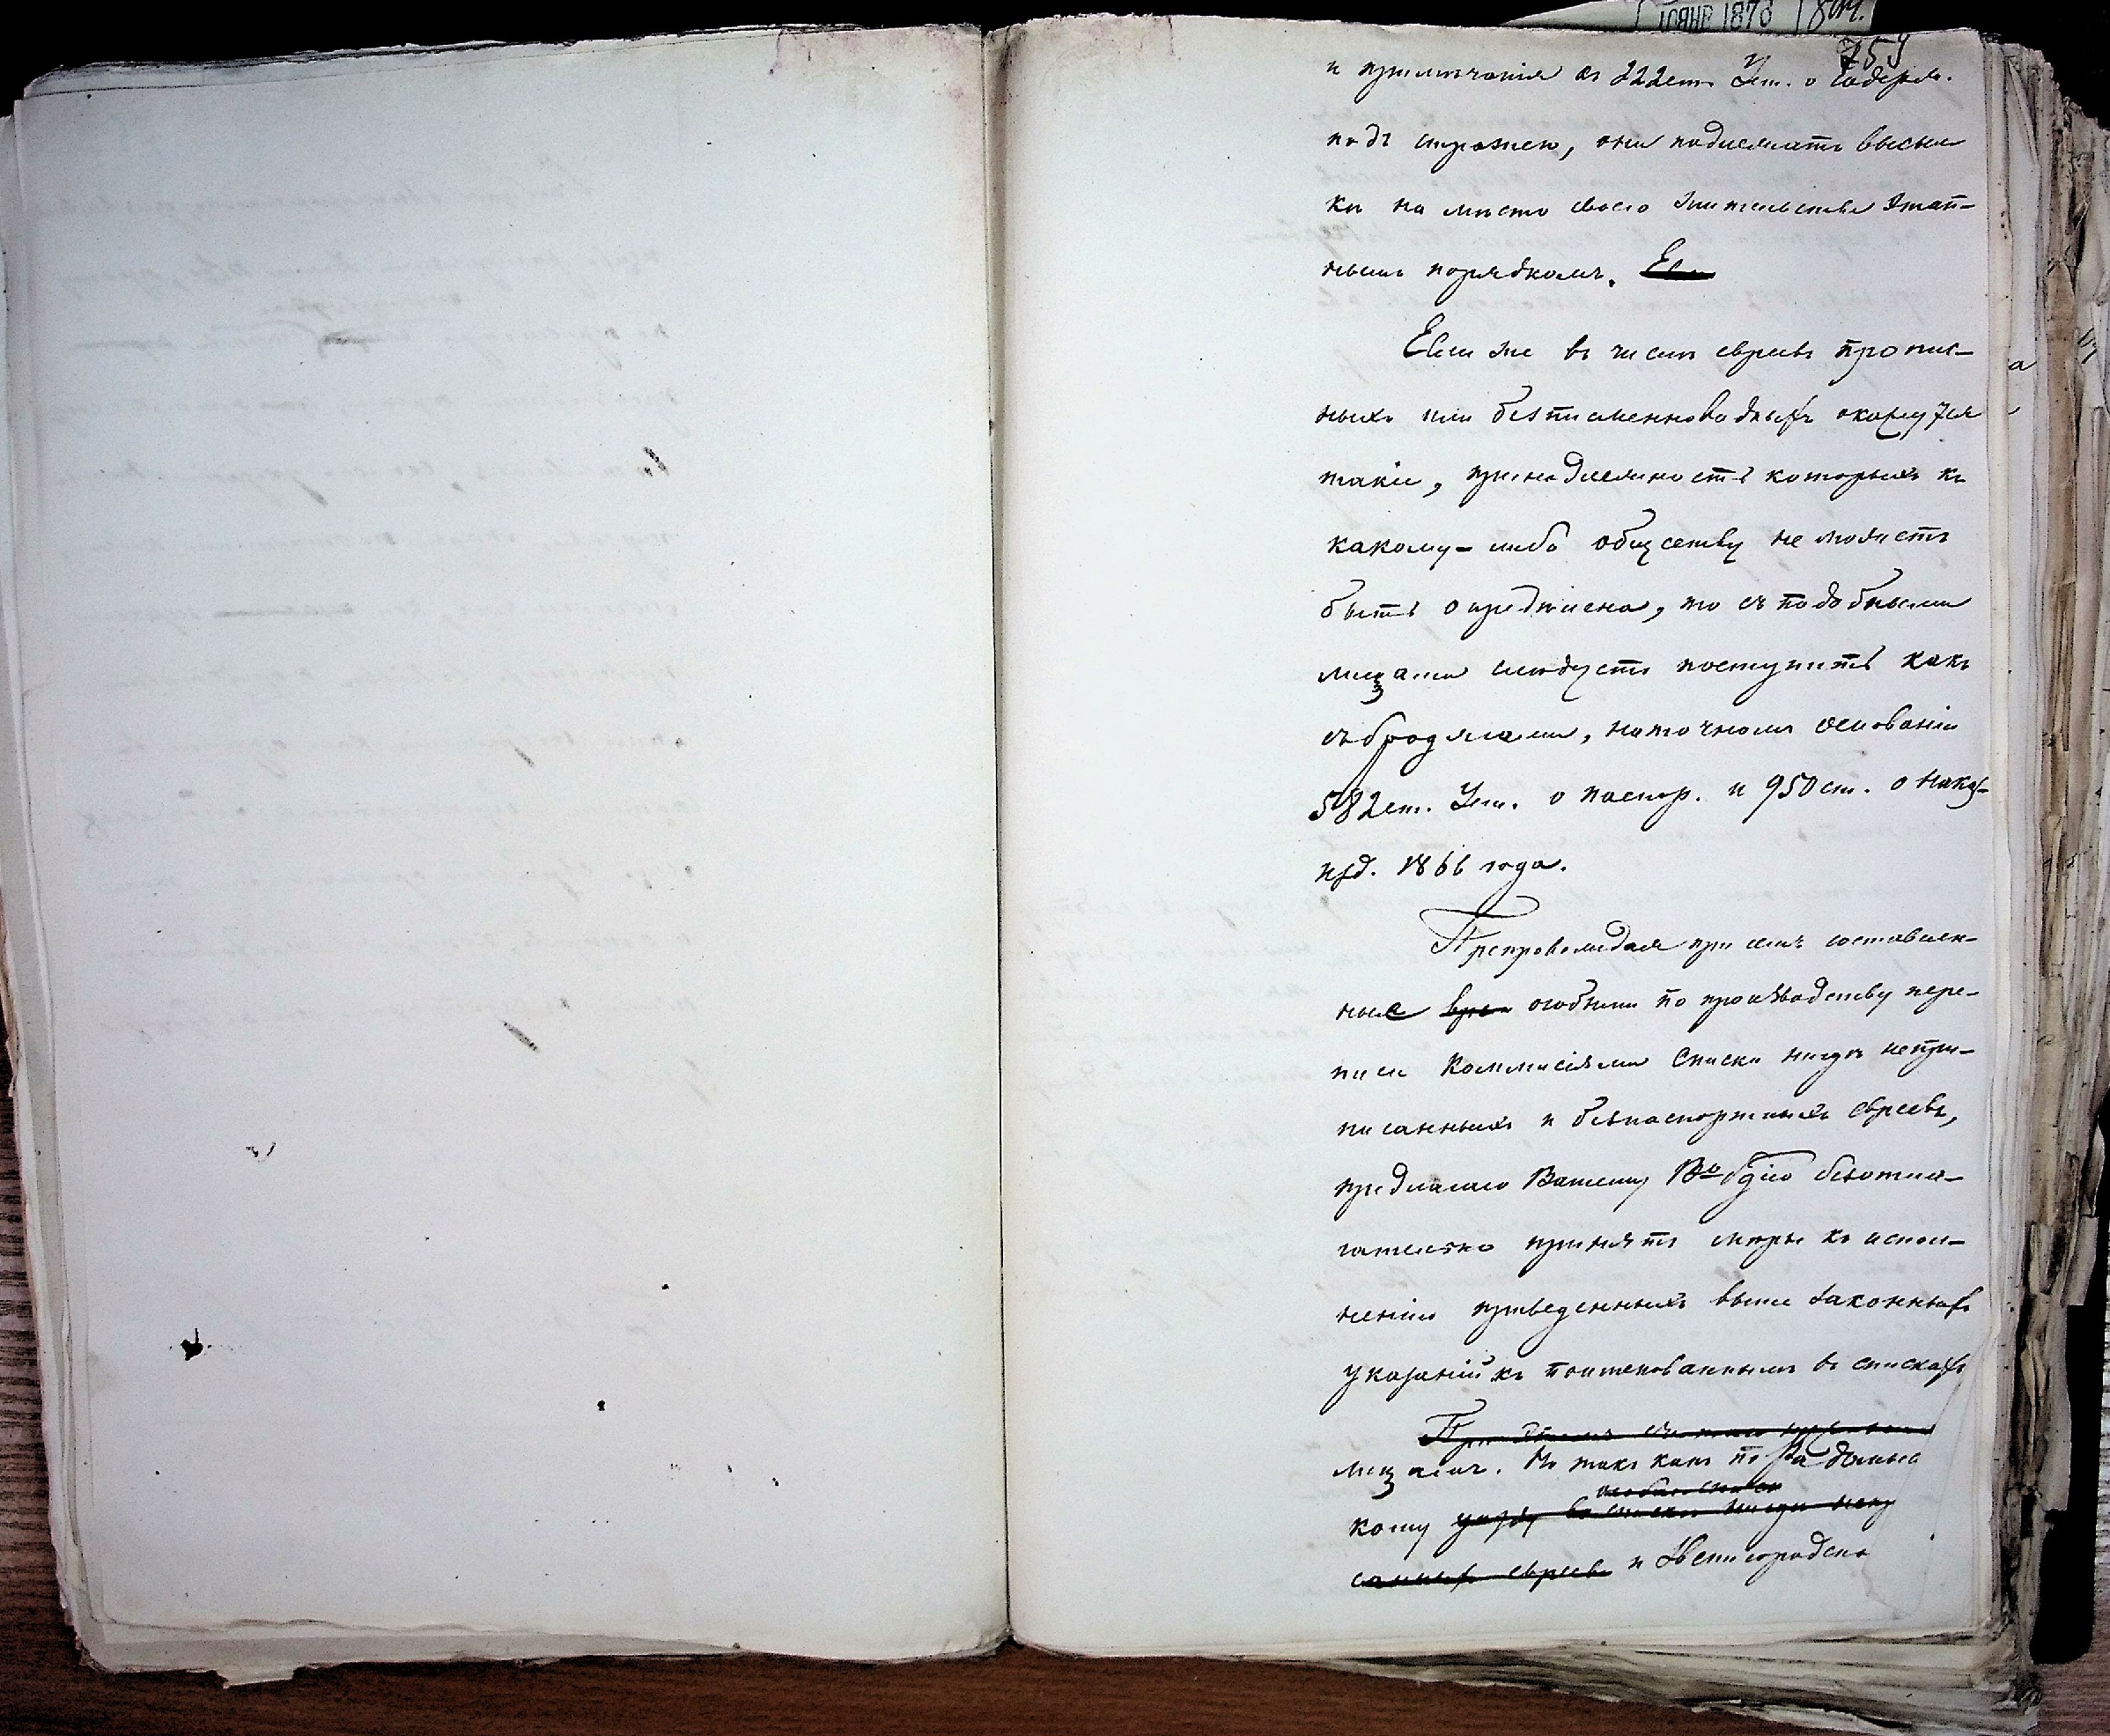 10 ЯНВ 1876
759
и примѣчанія къ 222 ст. Уст. о содерж.
подъ стражею, они подлежатъ высыл
кѣ на мѣсто своего жительства этап-
нымъ порядкомъ. Если
Если же въ числѣ евреевъ пропис-
ныхъ или безписьменновидныхъ окажутся
такіе, принадлежность которыхъ къ
какому-либо обществу не можетъ
быть опредѣлена, то съ подобными
лицами слѣдуетъ поступить какъ
съ бродягами, на точномъ основаніи
582 ст. Уст. о паспор. и 950 ст. о наказ-
изд. 1866 года.
Препровождая при семъ составлен-
ные особыми по производству пере-
писи Коммисіями списки нигдѣ непри-
писанныхъ и безпаспортныхъ евреевъ,
предлагаю Вашему В-о бдію безотла-
гательно принять мѣры къ испол-
ненію приведенныхъ выше законныхъ
указаній къ поименованнымъ въ спискахъ
При этомъ
лицамъ. Но такъ какъ по Радомысль
кому уѣзду въ списки нигдѣ непри
особые списки
санныхъ евреевъ и Звенигородско